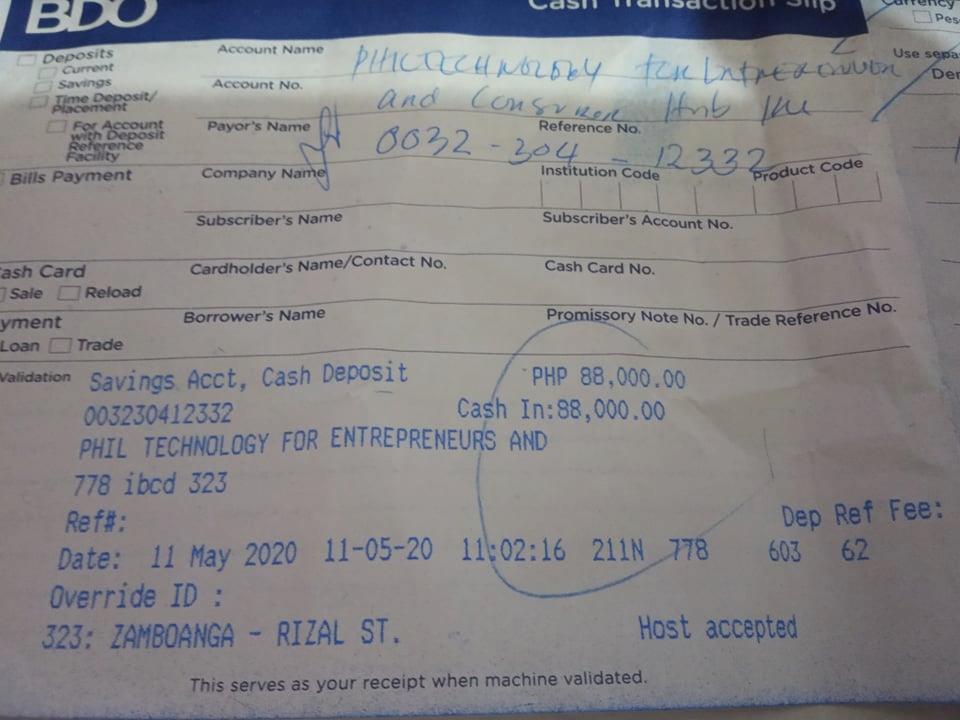 BDO Cash Transaction Slip
Currency
Pes
Deposits
Current
Savings
Time Deposit/
Placement
For Account
with Deposit
Reference
Facility
Account Name PHILTECHNOLOGY for Entrepreneur
Account No. and Consumer Hub Inc
Use sepa
Der
Payor's Name Reference No.
0032 - 304 - 12332
Bills Payment Company Name Institution Code Product Code
Subscriber's Name Subscriber's Account No.
ash Card Cardholder's Name/Contact No. Cash Card No.
Sale Reload
yment Borrower's Name Promissory Note No. / Trade Reference No.
Loan Trade
Validation Savings Acct, Cash Deposit PHP 88,000.00
003230412332 Cash In:88,000.00
PHIL TECHNOLOGY FOR ENTREPRENEURS AND
778 ibcd 323
Ref#: Dep Ref Fee:
Date: 11 May 2020 11-05-20 11:02:16 211N 778 603 62
Override ID :
323: ZAMBOANGA - RIZAL ST. Host accepted
This serves as your receipt when machine validated.